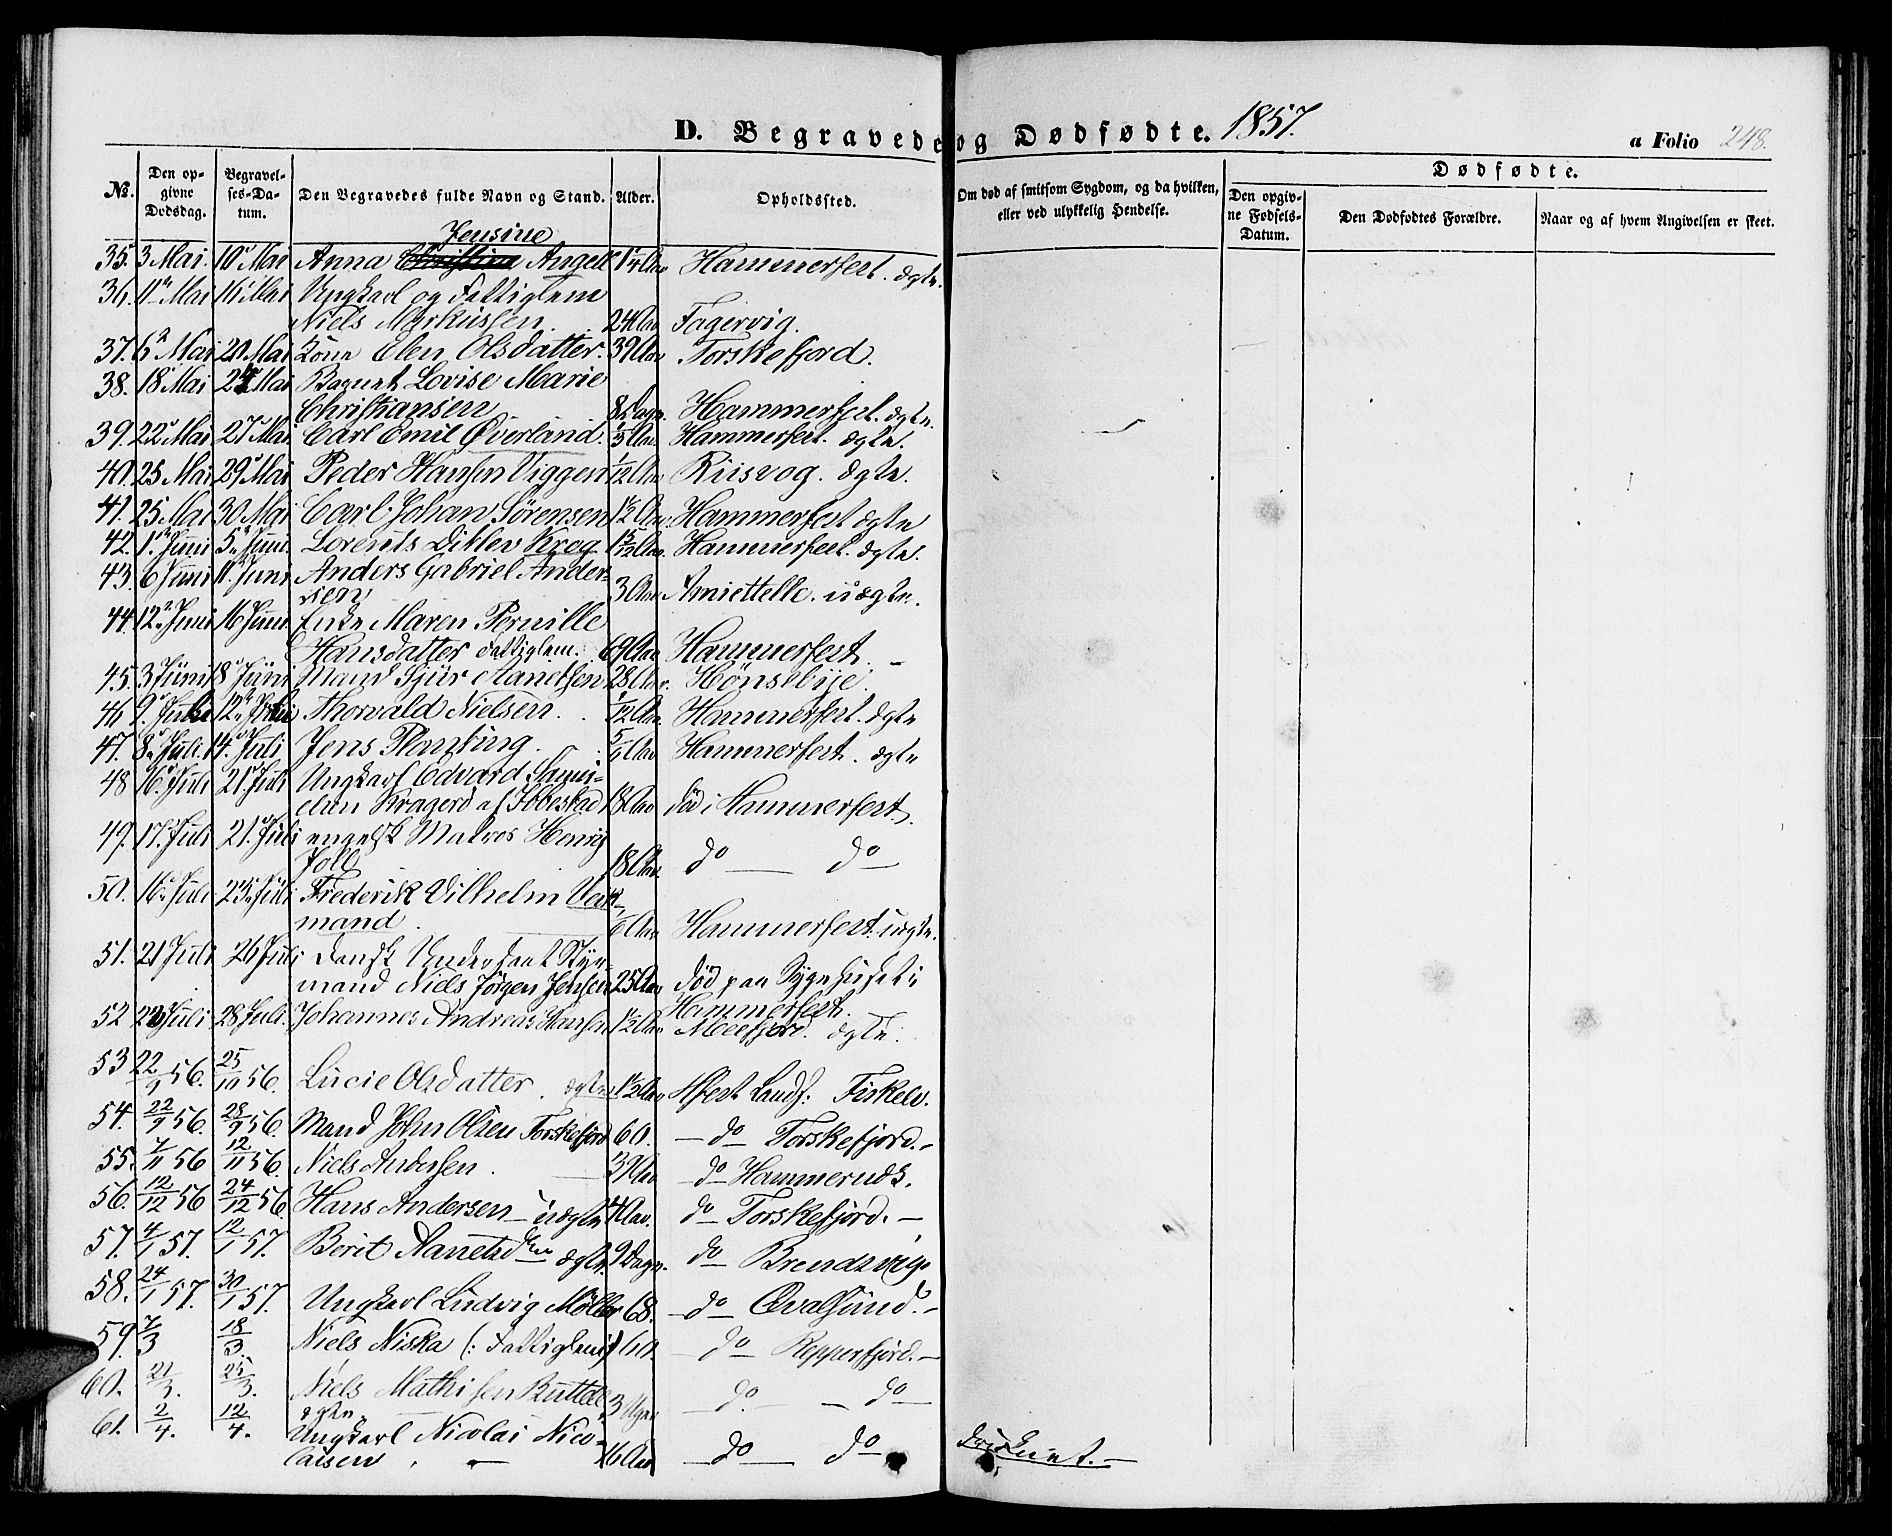 D. Begravede og Dødfødte. 1857.
a Folio 248.
No. Den opgivne Dødsdag. Begravelses-Datum. Den Begravedes fulde Navn og Stand. Alder. Opholdssted. Om død af smitsom Sygdom, og da hvilken, eller ved ulykkelig Hendelse. Dødfødte. Den opgivne Fødsels-Datum. Den Dødfødtes Forældre. Naar og af hvem Angivelsen er skeet.
Jensine
35. 3 Mai. 10 Mai Anna Christine Angell 1¼ Aar Hammerfest. ægte.
36. 11 Mai 16 Mai Ungkarl og Fattiglem
Niels Markussen. 24 Aar Fagervig.
37. 6 Mai 20 Mai Kone Elen Olsdatter. 39 Aar Torskefjord.
38. 18 Mai 24 Mai Barnet Lovise Marie
Christiansen 8 Dage. Hammerfest. ægte.
39. 22 Mai 27 Mai. Carl Emil Øverland. Aar Hammerfest. ægte.
40. 25 Mai 29 Mai Peder Hansen Viggen 1/12 Aar Riisvog. ægte.
41. 25 Mai 30 Mai Carl Johan Sörensen 1½ Aar Hammerfest ægte
42. 1. Juni 5 Juni. Lorents Ditlev Krog Aar. Hammerfest. ægte.
43. 6 Juni 11 Juni Anders Gabriel Ander-
sen 3 Aar uægte.
44. 12 Juni 16 Juni Enke Maren Pernille
Hansdatter Fattiglem. 69 Aar Hammerfest. –
45. 3 Juni 18 Juni Mand Sjur Aanetsen 28 Aar. Hönsebye.
46 9. Juli 12. Juli Thorvald Nielsen. 1/12 Aar. Hammerfest. ægte
47. 8. Juli 14. Juli Jens Planting. Aar Hammerfest. ægte
48 16. Juli 21. Juli Ungkarl Edvard Samu-
elsen Kragerö af Ibbestad 18 Aar død i Hammerfest.
49. 17. Juli 21. Juli engelsk Matros Henry
Joll 18 Aar. do — do
50. 16. Juli 23. Juli Frederik Vilhelm
mand. Aar Hammerfest. uægte.
51. 21 Juli 26 Juli Dansk Undersaat Styr-
mand Niels Jörgen Jensen 25 Aar død paa Sygehuset i
Hammerfest.
52 Juli 28 Juli. Johannes Andreas Hansen 1½ Aar Meefjord. ægte.
53 22/9 56. 25/10 56. Lucie Olsdatter. ægte 1½ Aar Hfest Landf: Fiskelv.
54. 22/9 56. 28/9 56. Mand John Olsen Torskefjord 60. – do Torskefjord. –
55. 7/11 56 12/11 56. Niels Andersen. 39 Aar – do Hammernæs.
56. 12/12 56 24/12 56. Hans Andersen – uægte 4 Aar. do – Torskefjord. –
57. 4/1 57. 12/1 57. Berit Aanetsdtr ægte. 9 Dage. do – Brendsvig.
58. 24/1 57. 30/1 57. Ungkarl Ludvig Möller 68. – do – Qvalsund. –
59. 7/3 18/3. Niels Niska (: Fattiglem :) 60. – do – Repperfjord. –
60. 21/3. 25/3. Niels Mathisen
ægte. 3 Uger – do. – do –
61. 2/4. 12/4. Ungkarl Nicolai Nico-
laisen. – 16 Aar – do – do – druknet. –